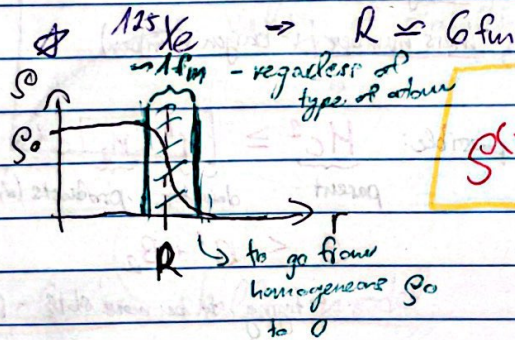 ☆ ¹²⁵Xe → R ≃ 6 fm
~ 1 fm - regardless of
type of atom
ρ
ρ₀
ρ(
r
R
to go from
homogeneous ρ₀
to 0